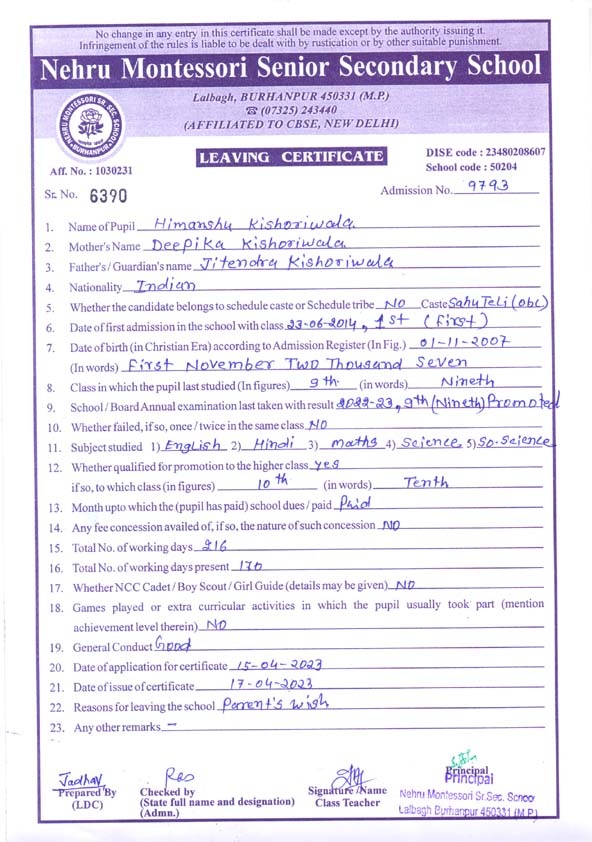 No change in any entry in this certificate shall be made except by the authority issuing it.
Infringement of the rules is liable to be dealt with by rustication or by other suitable punishment.
Nehru Montessori Senior Secondary School
Lalbagh, BURHANPUR 450331 (M.P.)
☎ (07325) 243440
(AFFILIATED TO CBSE, NEW DELHI)
NEHRU MONTESSORI SR. SEC. SCHOOL
BURHANPUR
LEAVING CERTIFICATE
DISE code : 23480208607
School code : 50204
Aff. No. : 1030231
Sr. No. 6390
Admission No. 9793
1. Name of Pupil Himanshu Kishoriwala
2. Mother's Name Deepika Kishoriwala
3. Father's / Guardian's name Jitendra Kishoriwala
4. Nationality Indian
5. Whether the candidate belongs to schedule caste or Schedule tribe NO Caste Sahu Teli (obc)
6. Date of first admission in the school with class 23-06-2014, 1st (first)
7. Date of birth (in Christian Era) according to Admission Register (In Fig.) 01-11-2007
(In words) First November Two Thousand Seven
8. Class in which the pupil last studied (In figures) 9th (in words) Nineth
9. School / Board Annual examination last taken with result 2022-23, 9th (Nineth) Promoted
10. Whether failed, if so, once / twice in the same class NO
11. Subject studied 1) English 2) Hindi 3) maths 4) Science 5) So. Science
12. Whether qualified for promotion to the higher class yes
if so, to which class (in figures) 10th (in words) Tenth
13. Month upto which the (pupil has paid) school dues / paid Paid
14. Any fee concession availed of, if so, the nature of such concession NO
15. Total No. of working days 216
16. Total No. of working days present 170
17. Whether NCC Cadet / Boy Scout / Girl Guide (details may be given) NO
18. Games played or extra curricular activities in which the pupil usually took part (mention
achievement level therein) NO
19. General Conduct Good
20. Date of application for certificate 15-04-2023
21. Date of issue of certificate 17-04-2023
22. Reasons for leaving the school Parent's wish
23. Any other remarks —
Jadhav
Prepared By
(LDC)
Checked by
(State full name and designation)
(Admn.)
Signature /Name
Class Teacher
Principal
Principal
Nehru Montessori Sr.Sec. School
Lalbagh Burhanpur 450331 (M.P.)